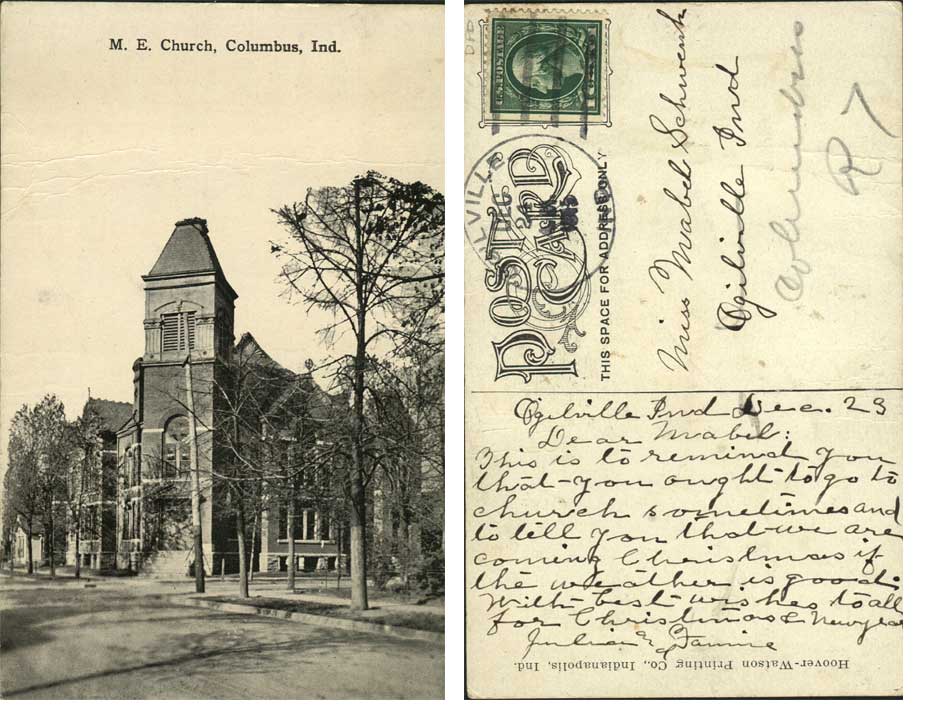 M. E. Church, Columbus, Ind.
U.S. POSTAGE
OGILVILLE
DEC
POST CARD
THIS SPACE FOR ADDRESS ONLY
Miss Mabel Schwenk
Ogilville Ind
Columbus
R 7
Ogilville Ind Dec. 23
Dear Mabel:
This is to remind you
that you ought to go to
church sometimes and
to tell you that we are
coming Christmas if
the weather is good.
With best wishes to all
for Christmas & New year
Julian &
Hoover-Watson Printing Co., Indianapolis, Ind.